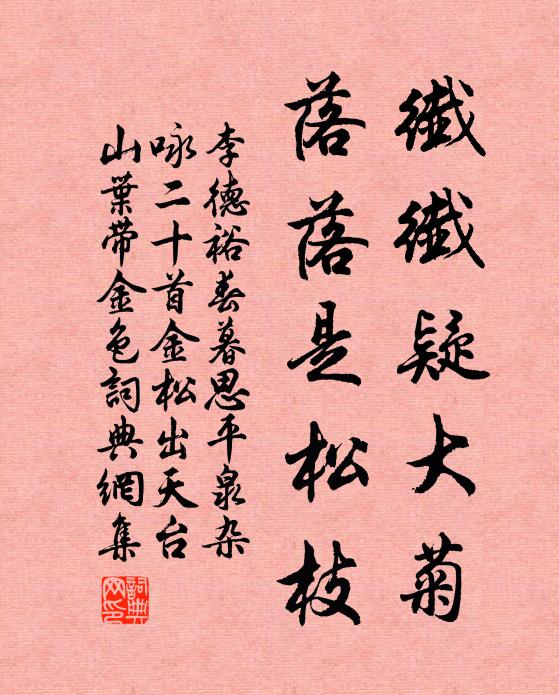 纖纖疑大菊
落落是松枝
李德裕春暮思平泉杂
咏二十首金松出天台
山葉带金色詞典網集
詞典网印